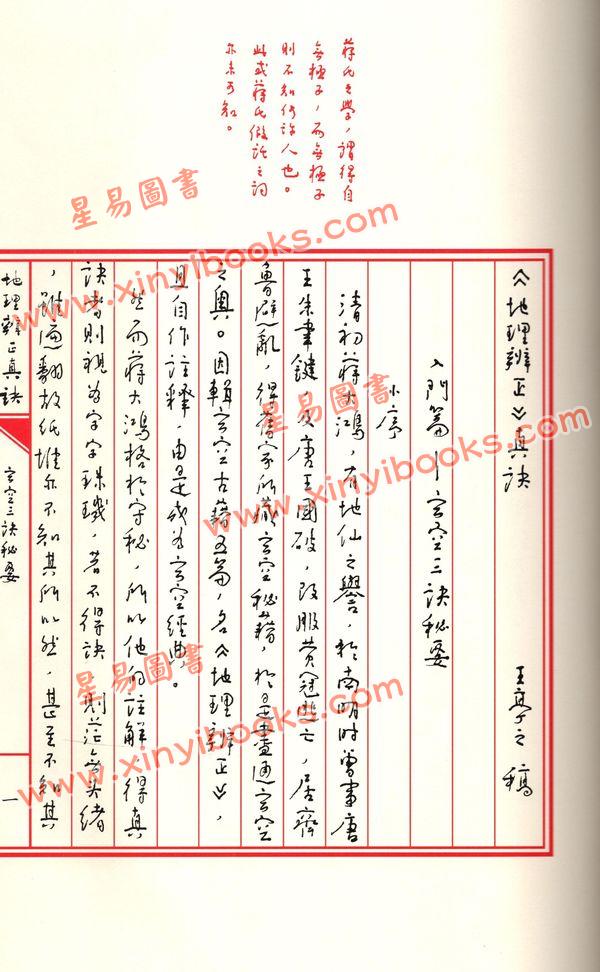 《地理辨正》真訣
王亭之稿
入門篇｜玄空三訣秘要
小序
清初蔣大鴻，有地仙之譽，於南明時曾事唐
王朱聿鍵，及唐王國破，改服黃冠逃亡，居齊
魯避亂，得舊家所藏玄空秘籍，於是盡通玄空
之奧。因輯玄空古籍五篇，名《地理辨正》，
且自作註釋，由是成為玄空經典。
然而蔣大鴻格於守秘，所以他的註解，得真
訣者則視為字字珠璣，若不得訣，則茫無頭緒
，雖遍翻故紙堆亦不知其所以然，甚至不知其
蔣氏之學，謂得自
無極子，而無極子
則不知何許人也。
此或蔣氏假託之詞
亦未可知。
地理辨正真訣
玄空三訣秘要
一
星易圖書
www.xinyibooks.com
www.xinyibooks.com
星易圖書
www.xinyibooks.com
星易圖書
www.xinyibooks.com